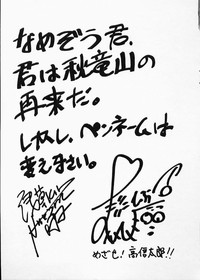 なめぞう君、
君は秋竜山の
再来だ。
しかし、ペンネームは
変えなさい。
めざせ！高信太郎！！